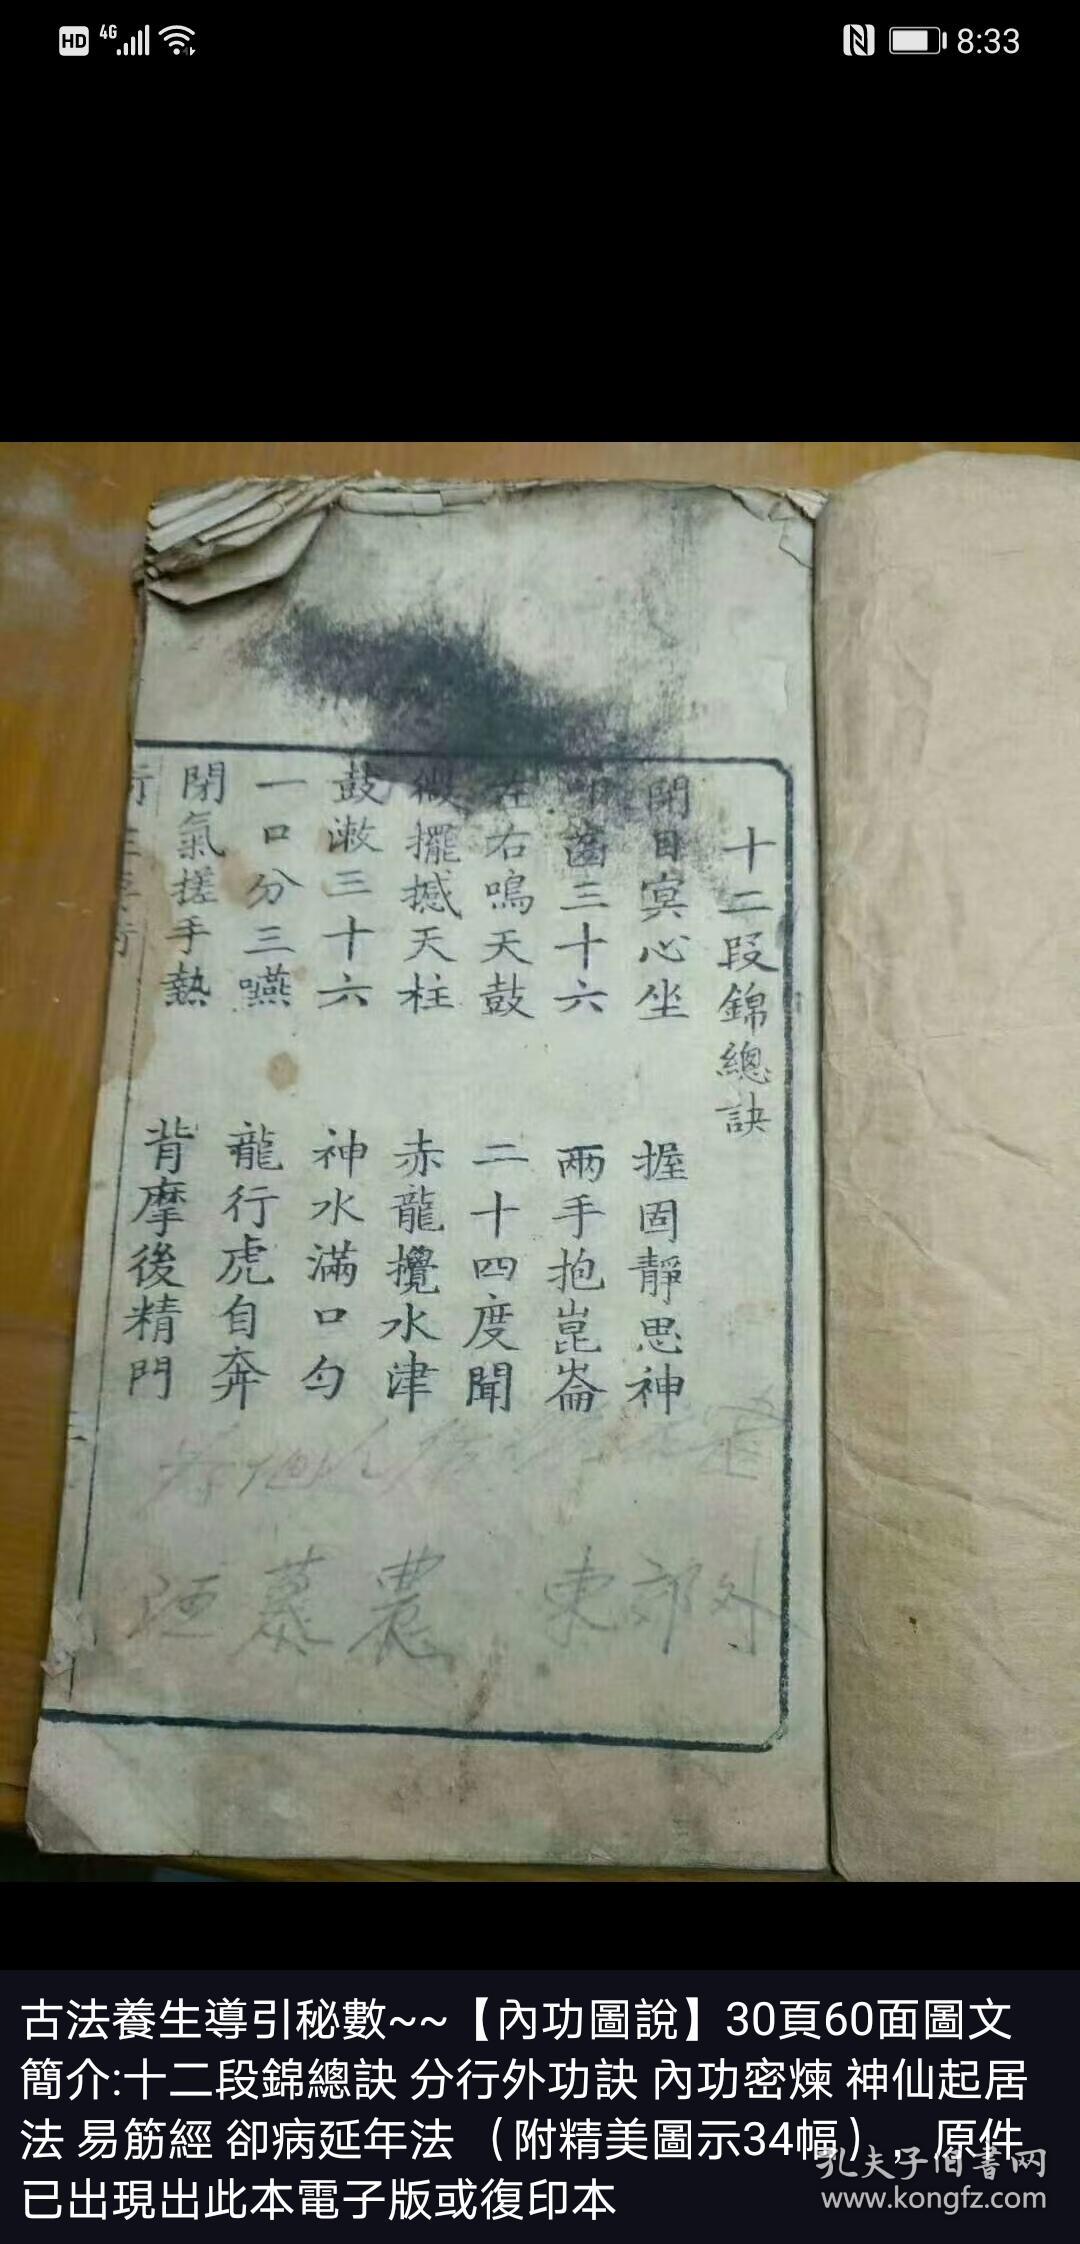 HD 4G 8:33
十二段錦總訣
閉目冥心坐 握固靜思神
齒三十六 兩手抱崑崙
左右鳴天鼓 二十四度聞
微擺撼天柱 赤龍攪水津
鼓漱三十六 神水滿口勻
一口分三嚥 龍行虎自奔
閉氣搓手熱 背摩後精門
東郊外
農
古法養生導引秘數~~【內功圖說】30頁60面圖文
簡介:十二段錦總訣 分行外功訣 內功密煉 神仙起居
法 易筋經 卻病延年法 （附精美圖示34幅）， 原件
已出現出此本電子版或復印本
孔夫子旧书网
www.kongfz.com